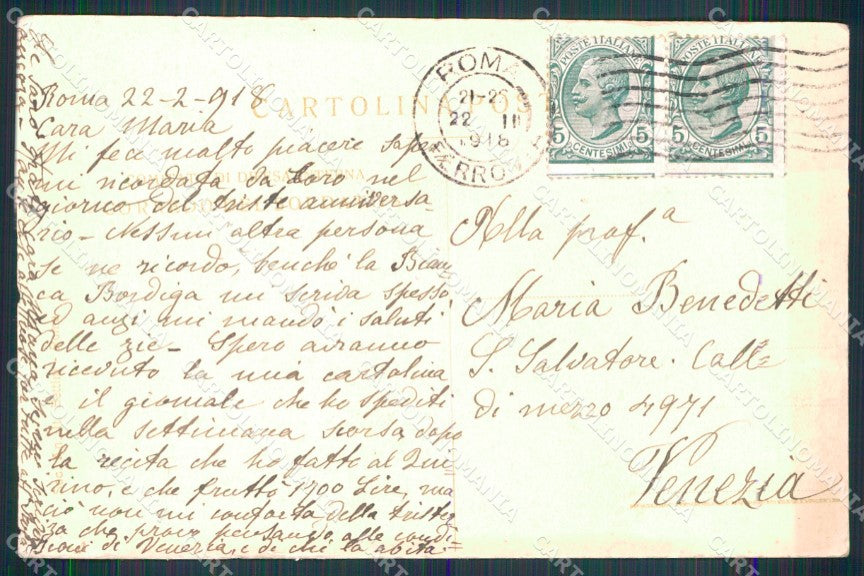 Roma 22-2-918
Cara Maria
Mi fece molto piacere saper
mi ricordata da Loro nel
giorno del triste anniversa-
rio - Nessun'altra persona
se ne ricordò, benchè la Bian
ca Bordiga mi scrida spesso,
ed anzi mi mandò i saluti
delle zie - Spero avranno
ricevuto la mia cartolina
e il giornale che ho spediti
nella settimana scorsa dopo
la recita che ho fatto al Qui
rino, e che fruttò 1700 Lire, ma
ciò non mi conforta della triste
zza che provo pensando alle condi-
zioni di Venezia e di chi la abita.
CARTOLINA POST
ROMA
21-22
22 III
1918
FERROV
POSTE ITALIANE
5 5
CENTESIMI
POSTE ITALIANE
5 5
CENTESIMI
Alla prof.ª
Maria Benedetti
S. Salvatore. Calle
di mezzo 4971
Venezia
CARTOLINOMANIA